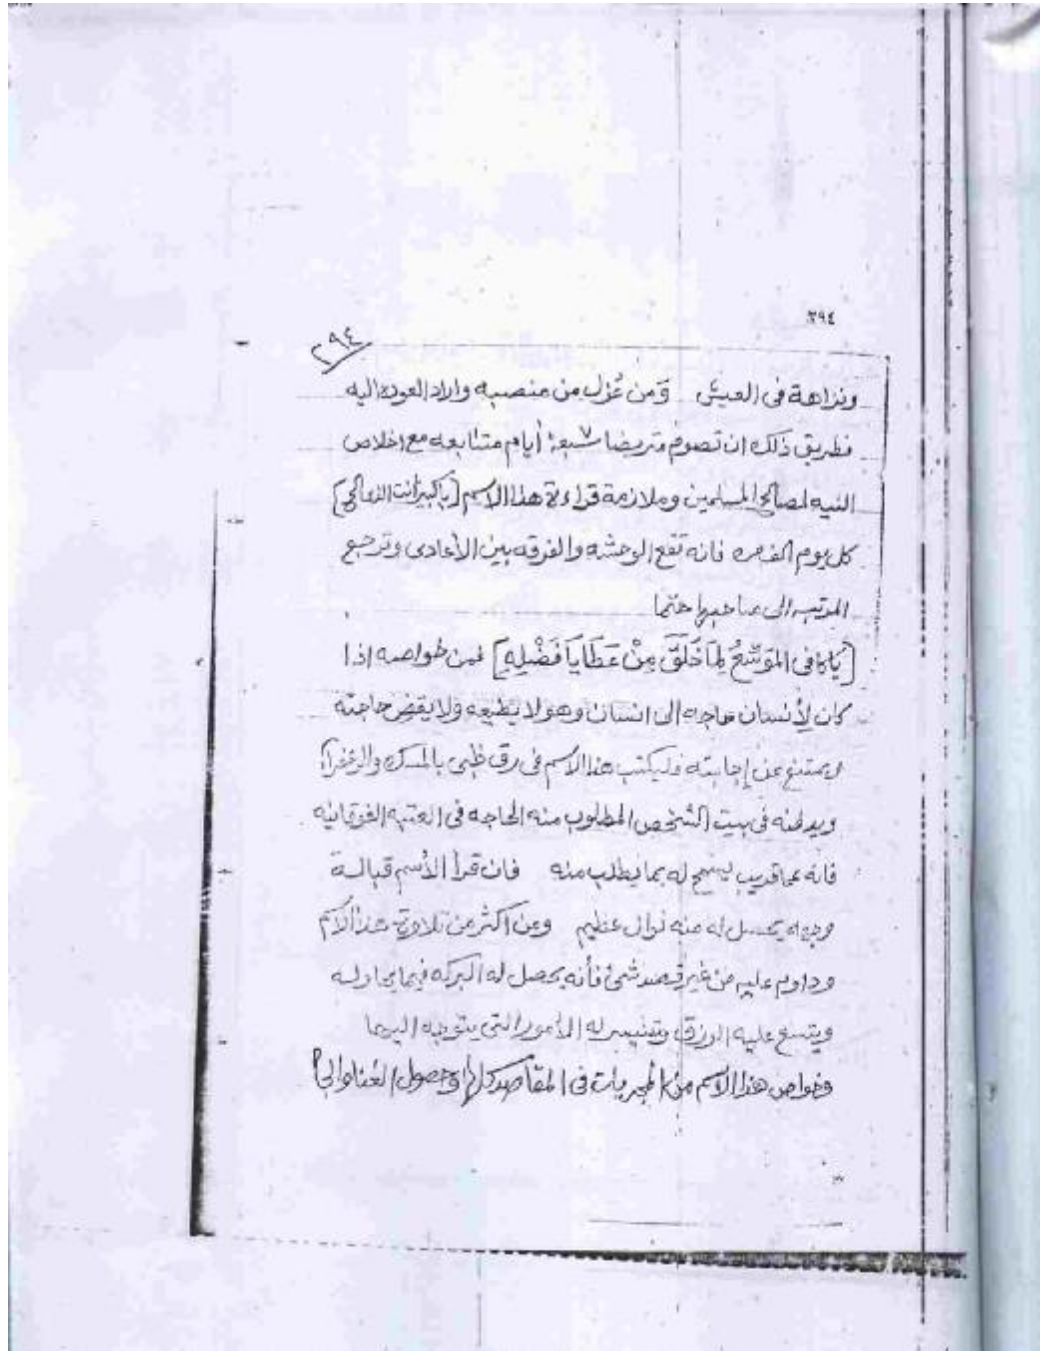 ٣٩٤
٢٩٤
ونزاهة في العيش ومن عُزل من منصبه واراد العوده اليه
فطريق ذلك ان تصوم متريضا سبعة ٧ أيام متتابعه مع اخلاص
النيه لمصالح المسلمين وملازمة قراءة هذا الاسم [ياكبير انت الذي
كل يوم الف مره فانه تقع الوحشه والفرقه بين الأعادى وترجع
المرتبه الى صاحبها حتما
[يَاكافى المَوَسِّعُ لِمَا خَلَقَ مِنْ عَطَايَا فَضْلِهِ] فمن خواصه اذا
كان لأنسان حاجه الى انسان وهو لا يطيعه ولا يقض حاجته
ويمتنع عن إجابته فليكتب هذا الاسم فى رق ظبى بالمسك والزعفران
ويدفنه فى بيت الشخص المطلوب منه الحاجه فى العتبه الفوقانيه
فانه عما قريب يسمح له بما يطلب منه فان قرأ الأسم قبالة
وجهه يحصل له منه نوال عظيم ومن اكثر من تلاوة هذا الاسم
وداوم عليه من غير قصد شئ فأنه يحصل له البركه فيما يحاوله
ويتسع عليه الرزق وتتيسر له الأمور التى يتوجه اليها
وخواص هذا الاسم من المجربات فى المقاصد كلها وحصول الغنا والجاه